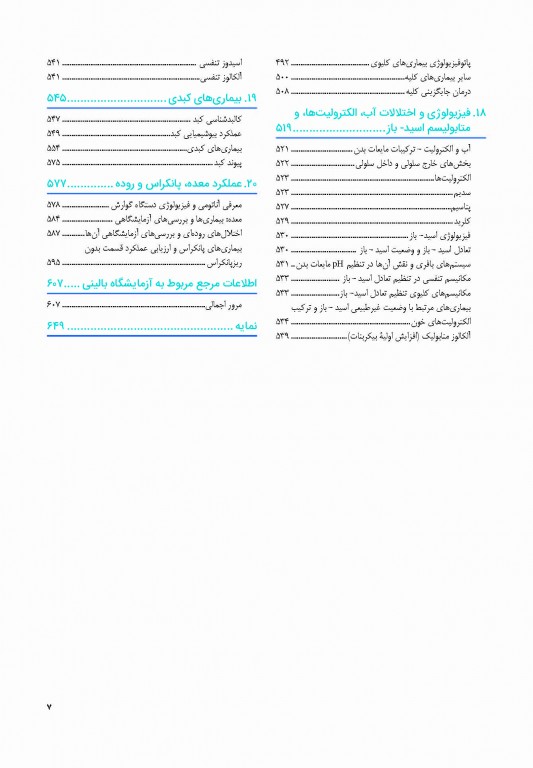 پاتوفیزیولوژی بیماری‌های کلیوی ۴۹۲
سایر بیماری‌های کلیه ۵۰۰
درمان جایگزینی کلیه ۵۰۸
۱۸. فیزیولوژی و اختلالات آب، الکترولیت‌ها، و
متابولیسم اسید- باز ۵۱۹
آب و الکترولیت – ترکیبات مایعات بدن ۵۲۱
بخش‌های خارج سلولی و داخل سلولی ۵۲۲
الکترولیت‌ها ۵۲۳
سدیم ۵۲۳
پتاسیم ۵۲۷
کلرید ۵۲۹
فیزیولوژی اسید- باز ۵۳۰
تعادل اسید – باز و وضعیت اسید – باز ۵۳۰
سیستم‌های بافری و نقش آن‌ها در تنظیم pH مایعات بدن ۵۳۱
مکانیسم تنفسی در تنظیم تعادل اسید – باز ۵۳۳
مکانیسم‌های کلیوی تنظیم تعادل اسید- باز ۵۳۳
بیماری‌های مرتبط با وضعیت غیرطبیعی اسید – باز و ترکیب
الکترولیت‌های خون ۵۳۴
آلکالوز متابولیک (افزایش اولیهٔ بیکربنات) ۵۳۹
اسیدوز تنفسی ۵۴۱
آلکالوز تنفسی ۵۴۱
۱۹. بیماری‌های کبدی ۵۴۵
کالبدشناسی کبد ۵۴۷
عملکرد بیوشیمیایی کبد ۵۴۹
بیماری‌های کبدی ۵۵۴
پیوند کبد ۵۷۵
۲۰. عملکرد معده، پانکراس و روده ۵۷۷
معرفی آناتومی و فیزیولوژی دستگاه گوارش ۵۷۸
معده: بیماری‌ها و بررسی‌های آزمایشگاهی ۵۸۴
اختلال‌های روده‌ای و بررسی‌های آزمایشگاهی آن‌ها ۵۸۷
بیماری‌های پانکراس و ارزیابی عملکرد قسمت بدون
ریزپانکراس ۵۹۵
اطلاعات مرجع مربوط به آزمایشگاه بالینی ۶۰۷
مرور اجمالی ۶۰۷
نمایه ۶۴۹
۷